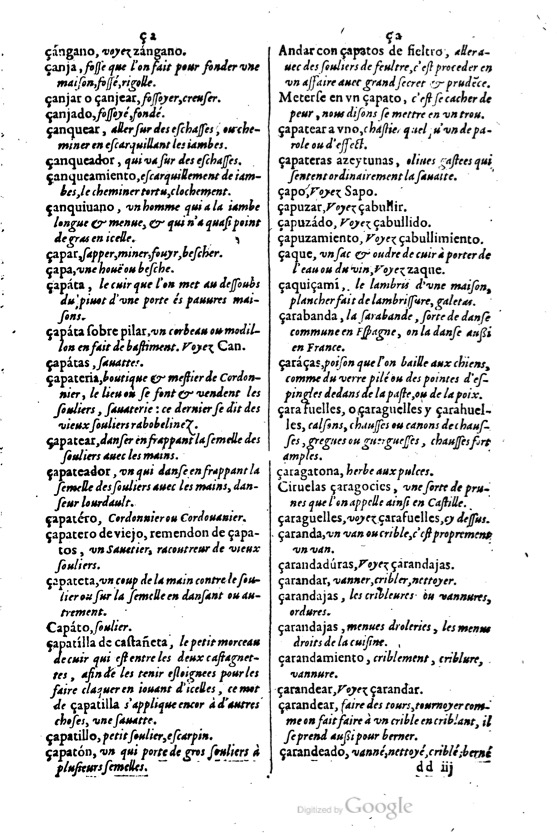 ça
çángano, voyez zángano.
çanja, fosse que l'on fait pour fonder vne
maison, fossé, rigolle.
çanjar o çanjear, fossoyer, creuser.
çanjado, fossoyé, fondé.
çanquear, aller sur des eschasses, ou che-
miner en escarquillant les iambes.
çanqueador, qui va sur des eschasses.
çanqueamiento, escarquillement de iam-
bes, le cheminer tortu, clochement.
çanquiuano, vn homme qui a la iambe
longue & menue, & qui n'a quasi point
de gras en icelle.
çapar, sapper, miner, fouyr, bescher.
çapa, vne houë ou besche.
çapáta, le cuir que l'on met au dessoubs
du piuot d'vne porte és pauures mai-
sons.
çapáta sobre pilar, vn corbeau ou modil-
lon en fait de bastiment. Voyez Can.
çapátas, sauattes.
çapateria, boutique & mestier de Cordon-
nier, le lieu où se font & vendent les
souliers, sauaterie: ce dernier se dit des
vieux souliers rabobelinez.
çapatear, danser en frappant la semelle des
souliers auec les mains.
çapateador, vn qui danse en frappant la
semelle des souliers auec les mains, dan-
seur lourdault.
çapatéro, Cordonnier ou Cordouanier.
çapatero de viejo, remendon de çapa-
tos, vn Sauetier, racoutreur de vieux
souliers.
çapateta, vn coup de la main contre le sou-
lier ou sur la semelle en dansant ou au-
trement.
Capáto, soulier.
çapatilla de castañeta, le petit morceau
de cuir qui est entre les deux castagnet-
tes, afin de les tenir esloignees pour les
faire claquer en iouant d'icelles, ce mot
de çapatilla s'applique encor à d'autres
choses, vne sauatte.
çapatillo, petit soulier, escarpin.
çapatón, vn qui porte de gros souliers à
plusieurs semelles.
ça
Andar con çapatos de fieltro, aller a-
uec des souliers de feultre, c'est proceder en
vn affaire auec grand secret & prudẽce.
Meterse en vn çapato, c'est se cacher de
peur, nous disons se mettre en vn trou.
çapatear a vno, chastier quelqu'vn de pa-
role ou d'effect.
çapateras azeytunas, oliues gastees qui
sentent ordinairement la sauatte.
çapo, Voyez Sapo.
çapuzar, Voyez çabullir.
çapuzádo, Voyez çabullido.
çapuzamiento, Voyez çabullimiento.
çaque, vn sac & oudre de cuir à porter de
l'eau ou du vin, Voyez zaque.
çaquiçami, le lambris d'vne maison,
plancher fait de lambrissure, galetas.
çarabanda, la sarabande, sorte de danse
commune en Espagne, on la danse aussi
en France.
caráças, poison que l'on baille aux chiens,
comme du verre pilé ou des pointes d'es-
pingles dedans de la paste, ou de la poix.
çarafuelles, o çaraguelles y çarahuel-
les, calsons, chausses ou canons de chaus-
ses, gregues ou guerguesses, chausses fort
amples.
çaragatona, herbe aux pulces.
Ciruelas çaragocies, vne sorte de pru-
nes que l'on appelle ainsi en Castille.
çaraguelles, voyez çarafuelles, cy dessus.
çaranda, vn van ou crible, c'est proprement
vn van.
çarandadúras, Voyez çarandajas.
çarandar, vanner, cribler, nettoyer.
çarandajas, les cribleures ou vannures,
ordures.
çarandajas, menues droleries, les menus
droits de la cuisine.
çarandamiento, criblement, criblure,
vannure.
çarandear, Voyez çarandar.
çarandear, faire des tours, tournoyer com-
me on fait faire à vn crible en criblant, il
se prend aussi pour berner.
çarandeado, vanné, nettoyé, criblé, berné
dd iij
Digitized by Google